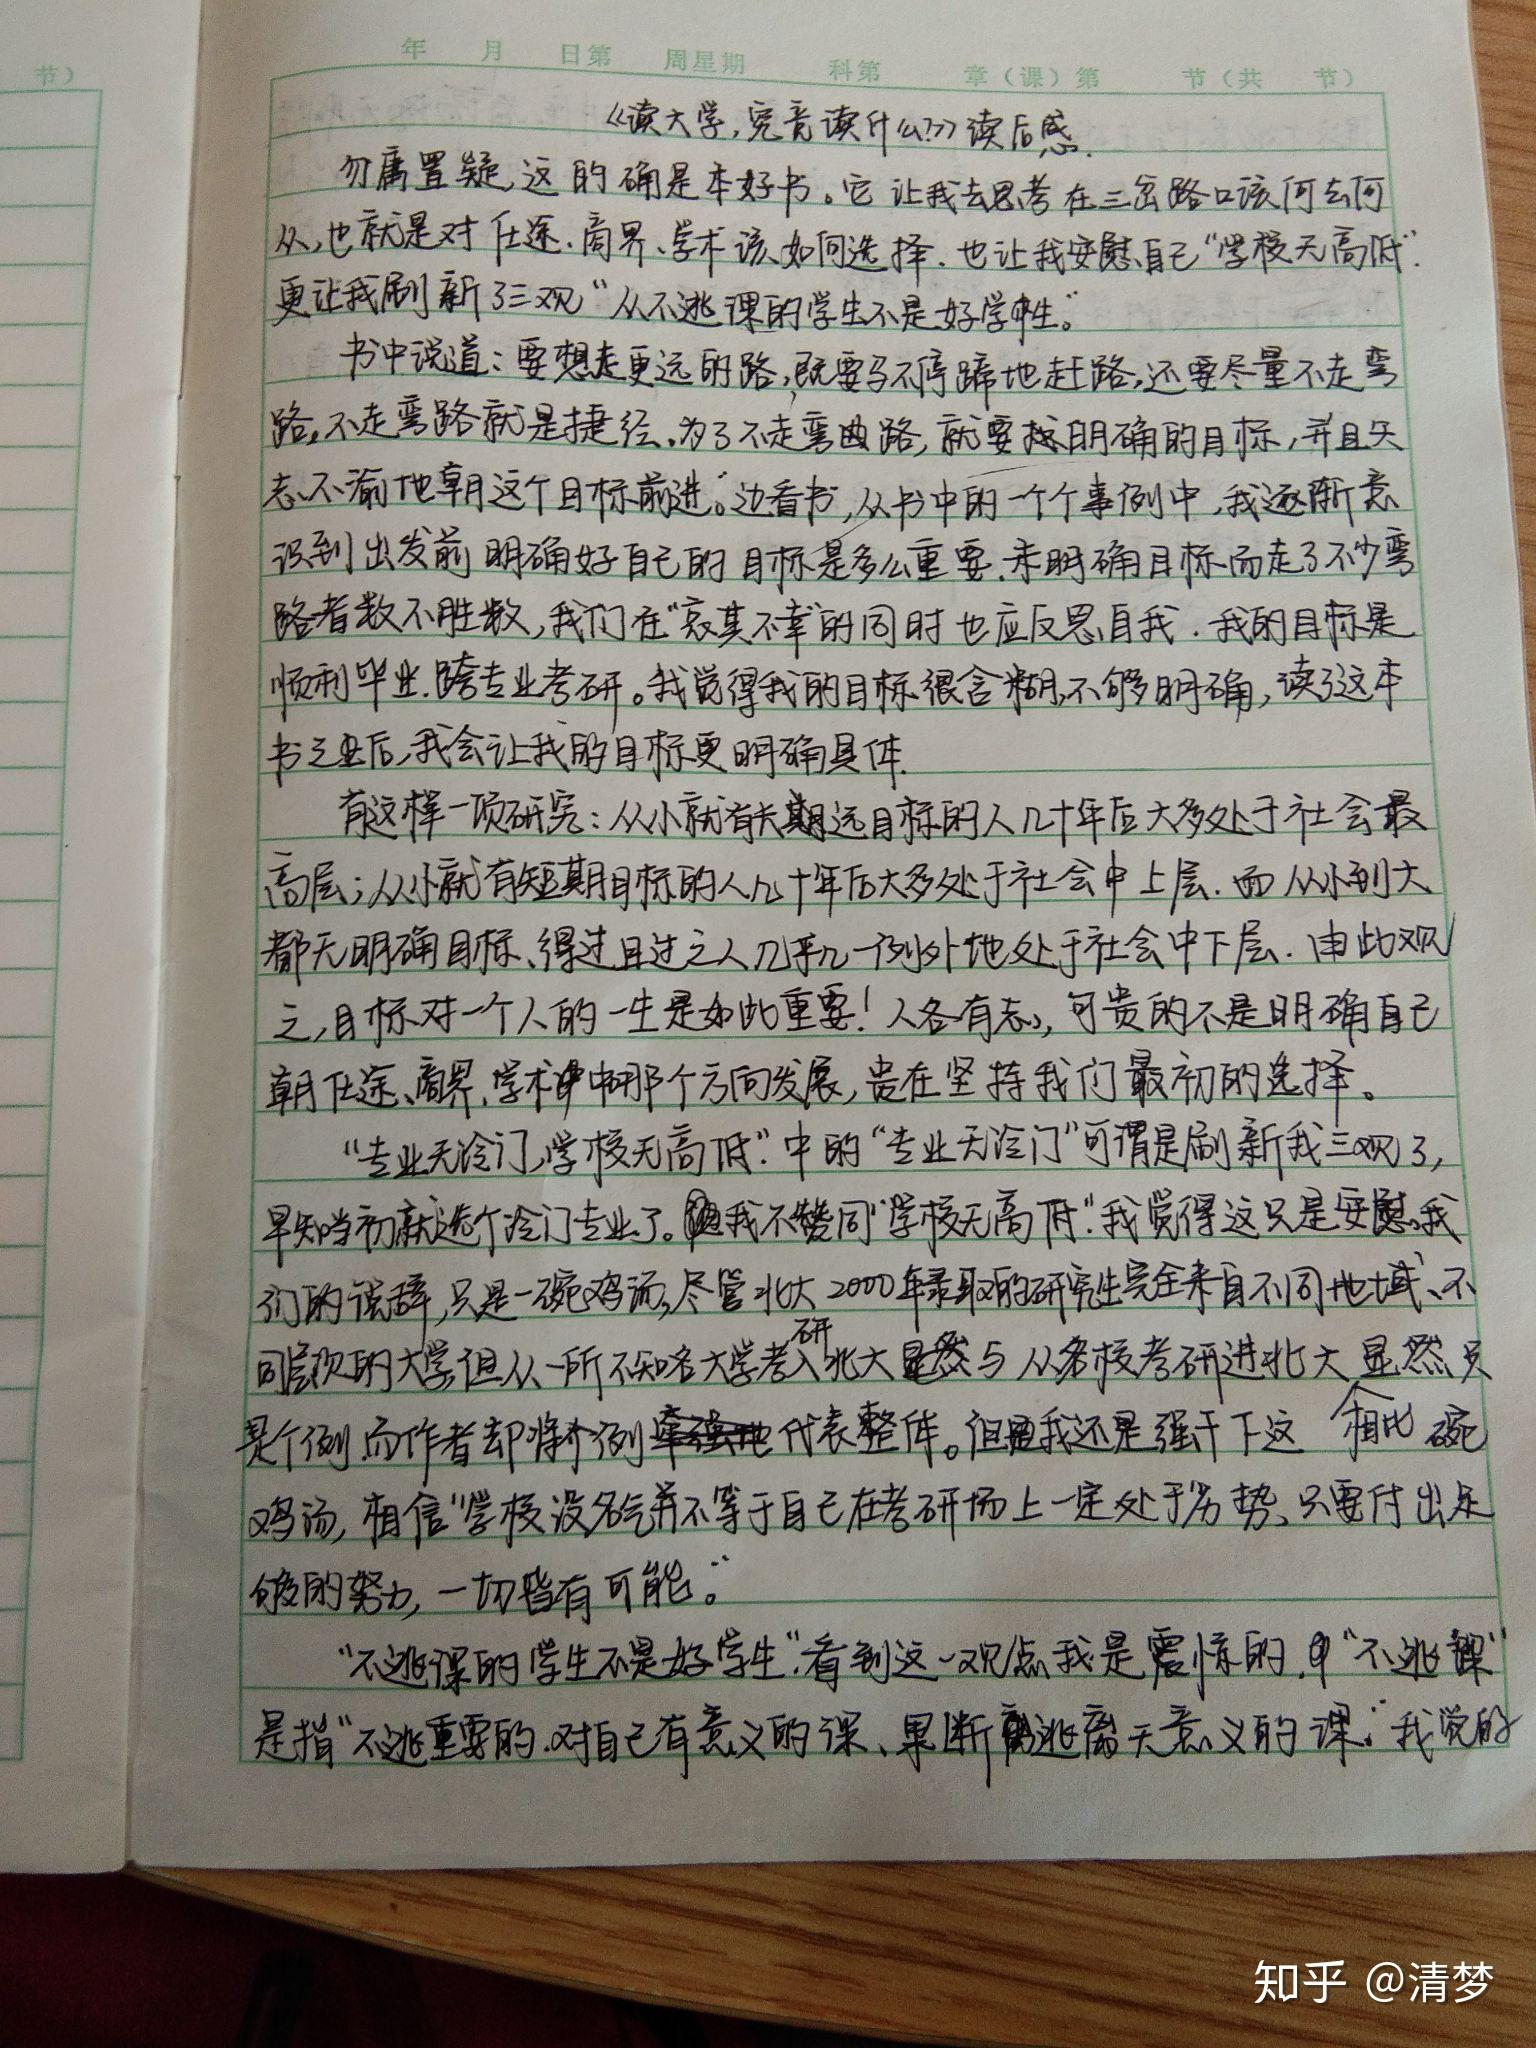 节）
年 月 日第 周星期 科第 章（课）第 节（共 节）
《读大学，究竟读什么？》读后感.
勿庸置疑，这的确是本好书。它让我去思考在三岔路口该何去何
从，也就是对仕途、商界、学术该如何选择．也让我安慰自己“学校无高低”．
更让我刷新了三观“从不逃课的学生不是好学生。”
书中说道：要想走更远的路，既要马不停蹄地赶路，还要尽量不走弯
路，不走弯路就是捷径。为了不走弯曲路，就要找明确的目标，并且矢
志不渝地朝这个目标前进。”边看书，从书中的一个个事例中，我逐渐意
识到出发前明确好自己的目标是多么重要．未明确目标而走了不少弯
路者数不胜数，我们在“哀其不幸”的同时也应反思自我．我的目标是
顺利毕业．跨专业考研。我觉得我的目标很含糊，不够明确，读了这本
书之后，我会让我的目标更明确具体．
有这样一项研究：从小就有长远目标的人几十年后大多处于社会最
高层；从小就有短期目标的人几十年后大多处于社会中上层．而从小到大
都无明确目标、得过且过之人几乎无一例外地处于社会中下层．由此观
之，目标对一个人的一生是如此重要！人各有志，可贵的不是明确自己
朝仕途、商界、学术中哪个方向发展，贵在坚持我们最初的选择。
“专业无冷门，学校无高低”．中的“专业无冷门”可谓是刷新我三观了，
早知当初就选个冷门专业了。但我不赞同“学校无高低”．我觉得这只是安慰我
们的说辞，只是一碗鸡汤，尽管北大2000年录取的研究生完全来自不同地域、不
同层次的大学，但从一所不知名大学考研入北大与从名校考研进北大相比显然只
是个例．而作者却将个例代表整体。但我还是强干下这碗
鸡汤，相信“学校没名气并不等于自己在考研场上一定处于劣势、只要付出足
够的努力，一切皆有可能。”
“不逃课的学生不是好学生”．看到这一观点我是震惊的．“不逃课”
是指“不逃重要的．对自己有意义的课、果断逃离无意义的课。”我觉的
知乎 @清梦